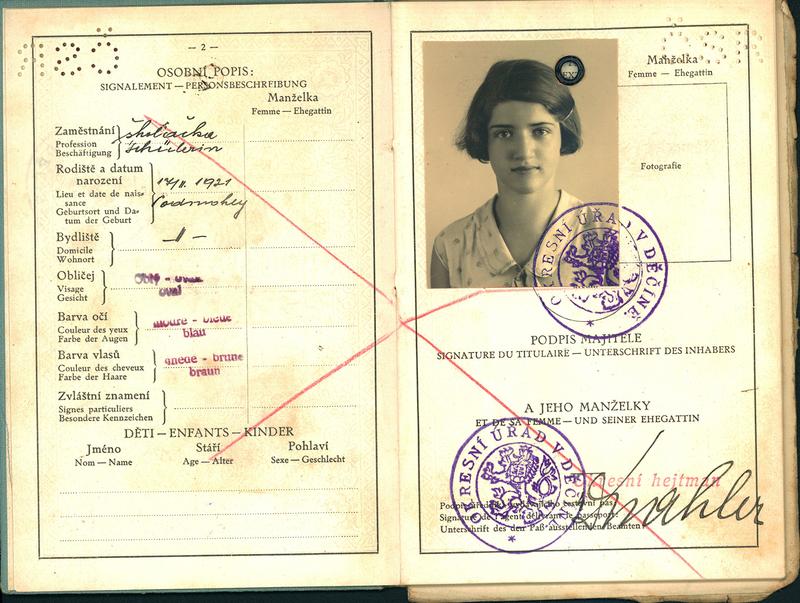 — 2 —
OSOBNÍ POPIS:
SIGNALEMENT — PERSONSBESCHREIBUNG
Manželka
Femme — Ehegattin
Zaměstnání
Profession
Beschäftigung
školačka
Schülerin
Rodiště a datum
narození
Lieu et date de nais-
sance
Geburtsort und Da-
tum der Geburt
1921
Podmokly
Bydliště
Domicile
Wohnort
— 〃 —
Obličej
Visage
Gesicht
oval
Barva očí
Couleur des yeux
Farbe der Augen
modré - bleue
blau
Barva vlasů
Couleur des cheveux
Farbe der Haare
hnědé - brune
braun
Zvláštní znamení
Signes particuliers
Besondere Kennzeichen
DĚTI — ENFANTS — KINDER
Jméno Stáří Pohlaví
Nom — Name Age — Alter Sexe — Geschlecht
Manželka
Femme — Ehegattin
Fotografie
OKRESNÍ ÚŘAD V DĚČÍNĚ
PODPIS MAJITELE
SIGNATURE DU TITULAIRE — UNTERSCHRIFT DES INHABERS
A JEHO MANŽELKY
ET DE SA FEMME — UND SEINER EHEGATTIN
OKRESNÍ ÚŘAD V DĚČÍNĚ
Okresní hejtman
Podpis úředníka vydávajícího cestovní pas:
Signature de l'agent délivrant le passeport:
Unterschrift des den Paß ausstellenden Beamten: